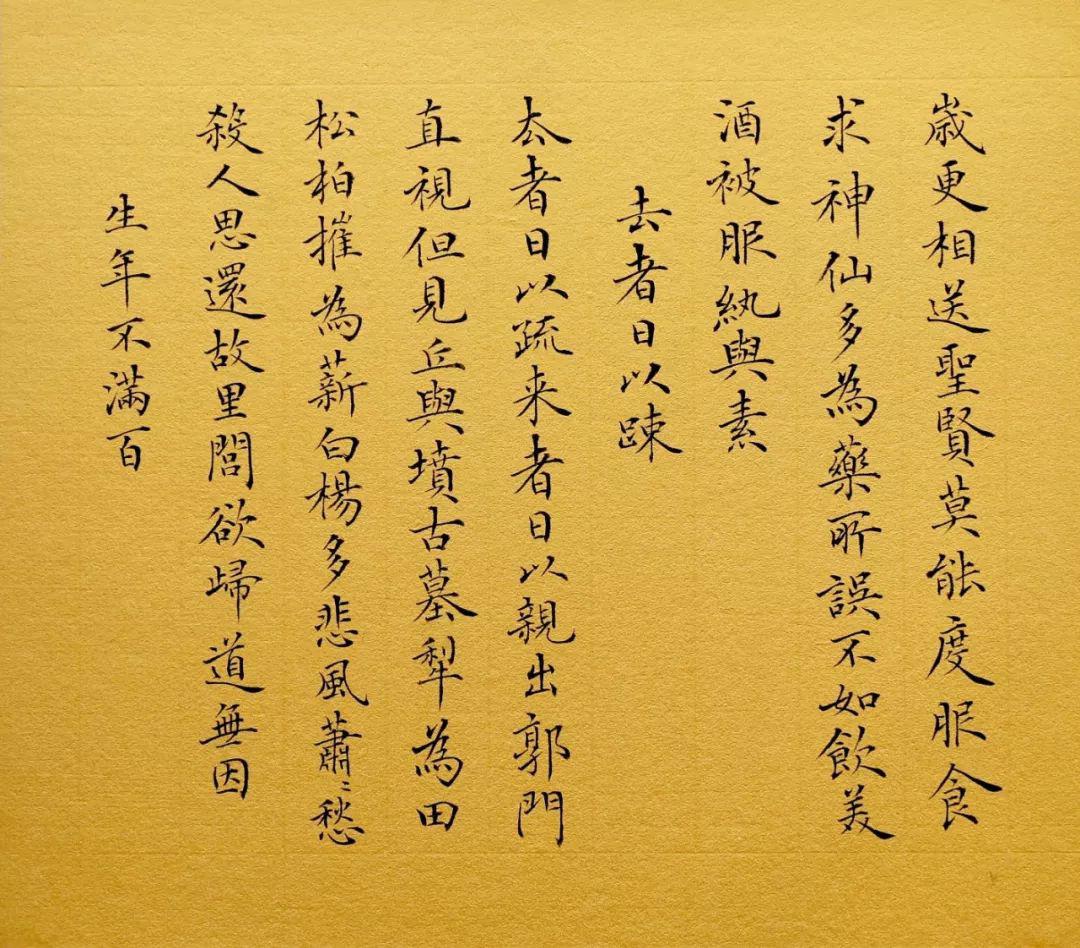 歲更相送聖賢莫能度服食
求神仙多為藥所誤不如飲美
酒被服紈與素
去者日以疎
去者日以疏来者日以親出郭門
直視但見丘與墳古墓犁為田
松柏摧為薪白楊多悲風蕭〻愁
殺人思還故里閭欲歸道無因
生年不滿百